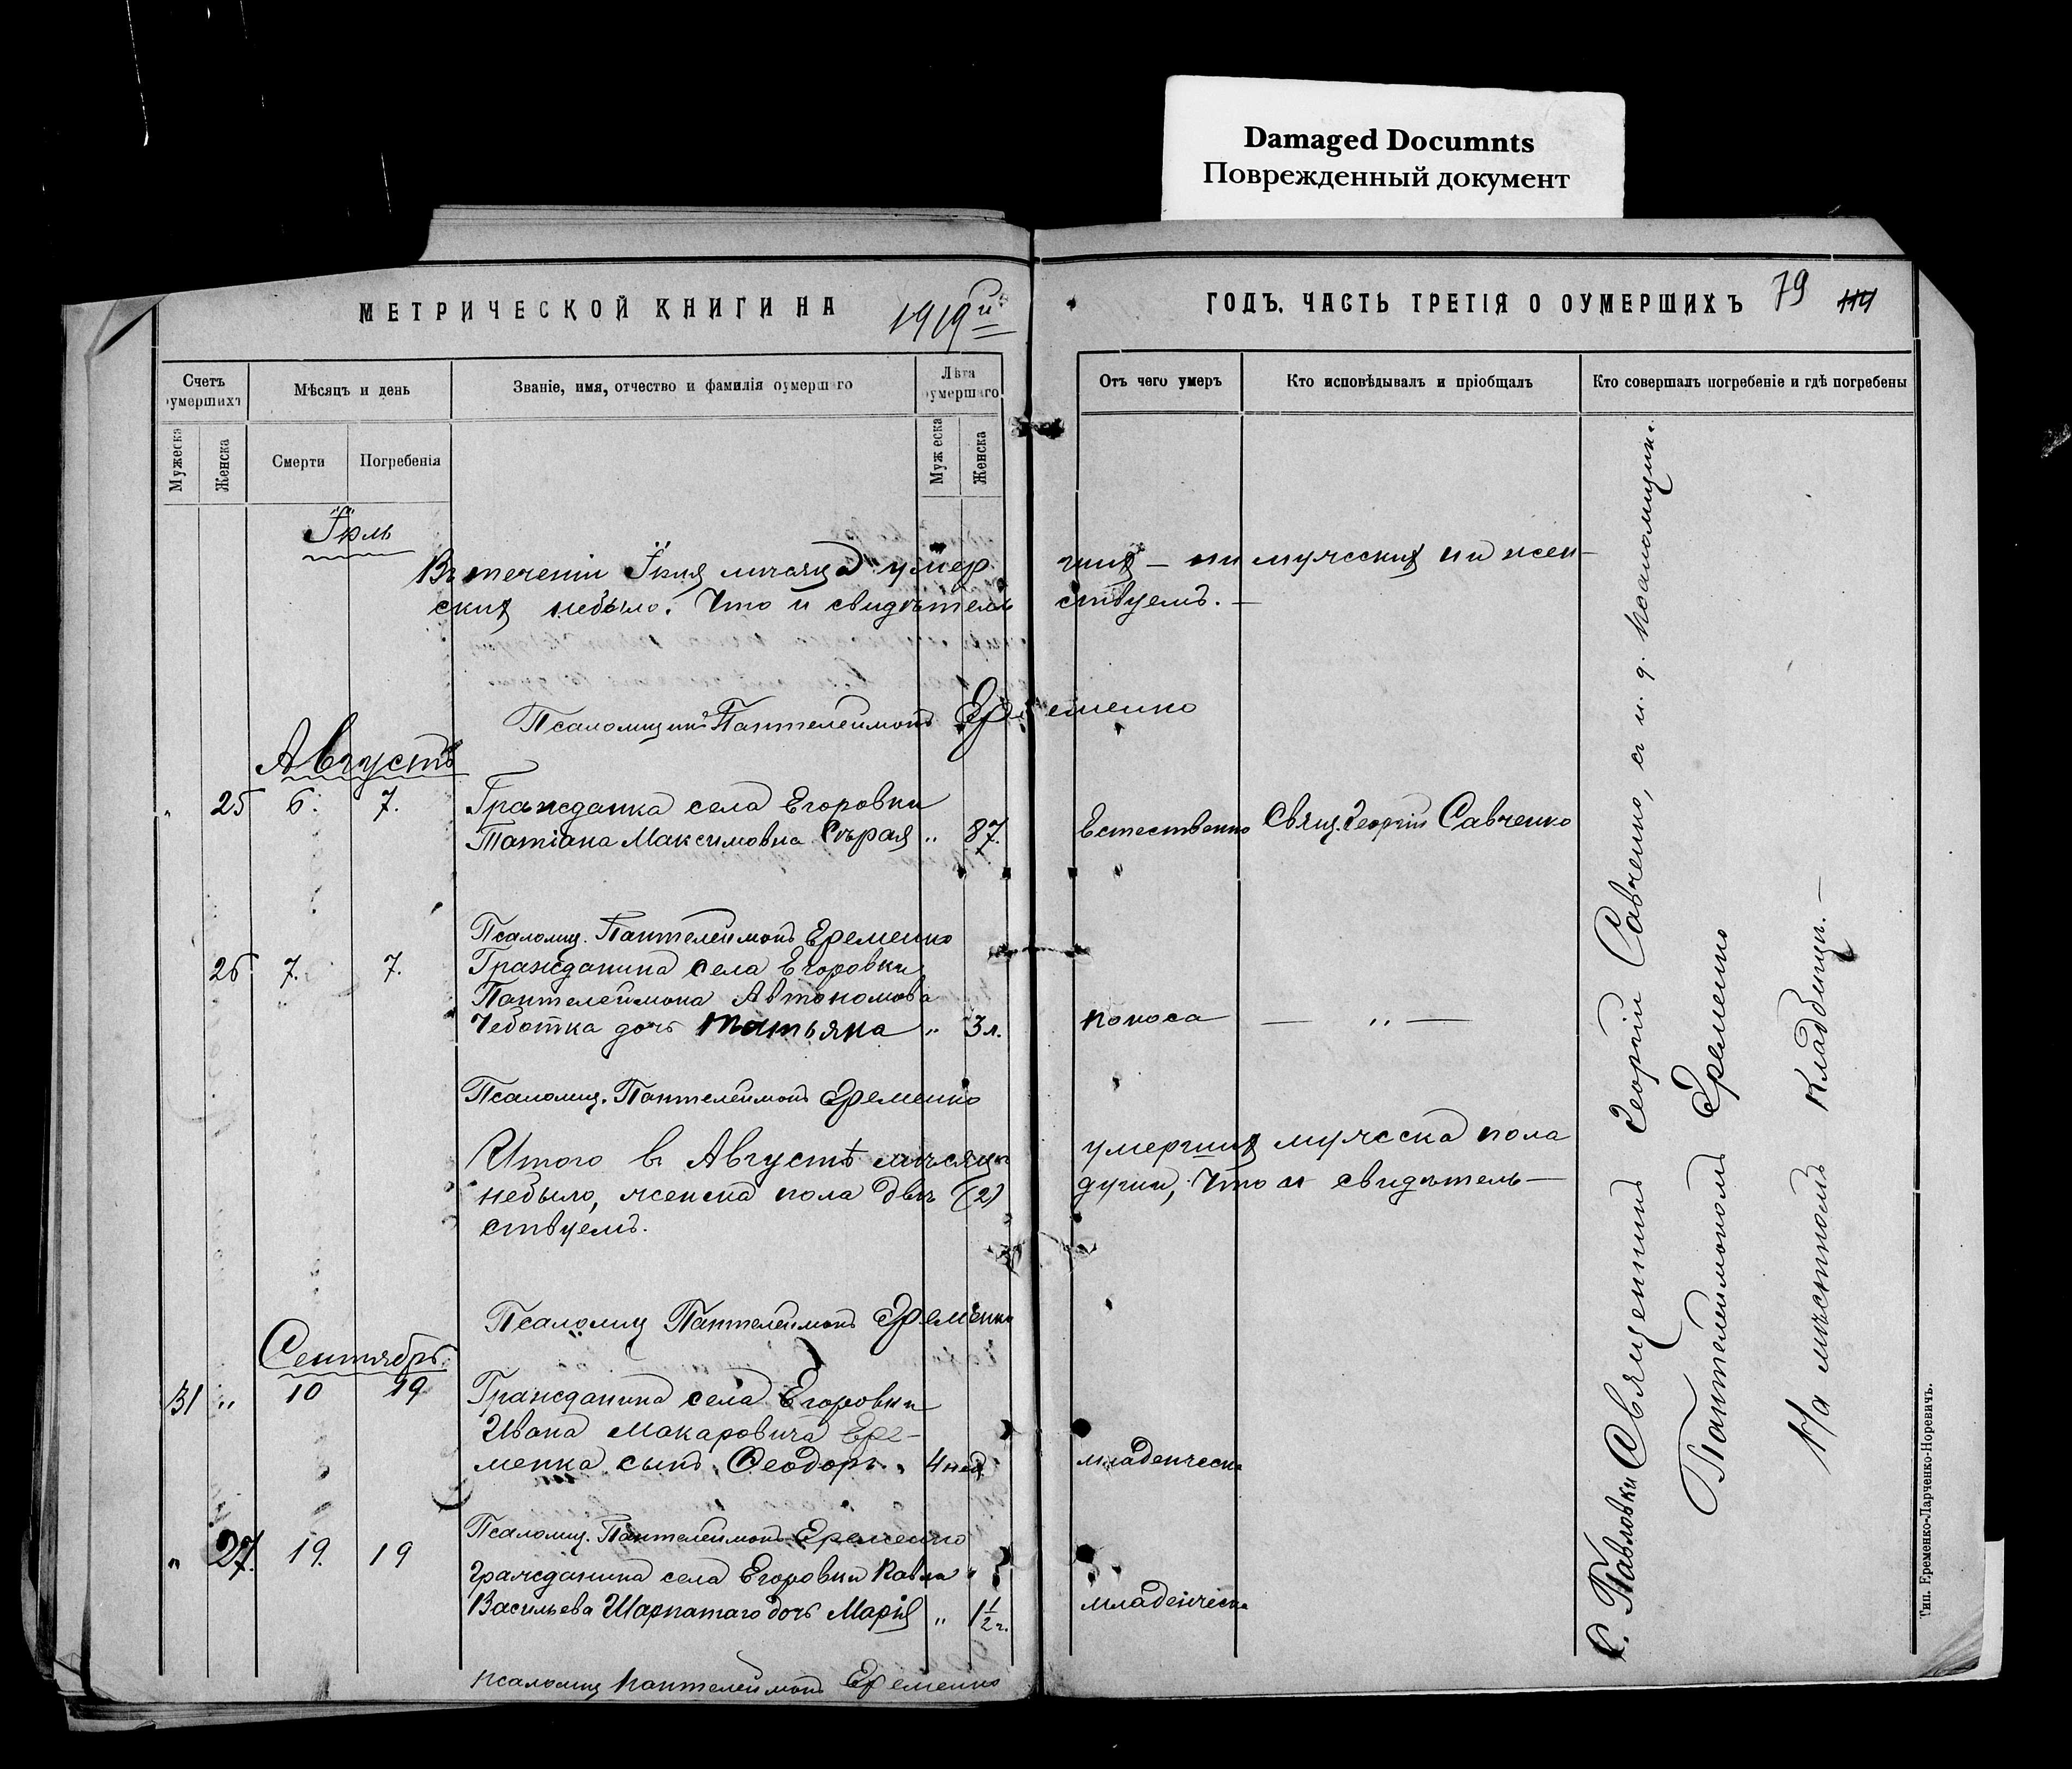 Damaged Documnts
Поврежденный документ
МЕТРИЧЕСКОЙ КНИГИ НА 1919й
ГОДЪ. ЧАСТЬ ТРЕТІЯ О ОУМЕРШИХЪ 79 114
Счетъ оумершихъ
Мѣсяцъ и день
Званіе, имя, отчество и фамилія оумершаго
Лѣта оумершаго
Отъ чего умеръ
Кто исповѣдывалъ и пріобщалъ
Кто совершалъ погребеніе и гдѣ погребены
Мужеска
Женска
Смерти
Погребенія
Мужеска
Женска
Іюль
Въ теченіи Іюля мѣсяца умер- шихъ — ни мужескихъ ни жен-
скихъ небыло. Что и свидѣтель ствуемъ. —
Псаломщикъ Пантелеймонъ Еременко
Августъ
„ 25 6. 7. Гражданка села Егоровки
Татіана Максимовна Сѣрая „ 87. Естественно Свящ. Георгій Савченко
Псаломщ. Пантелеймонъ Еременко
26 7. 7. Гражданина села Егоровки
Пантелеймона Автономова
Чеботка дочь Татьяна „ 3 л. поноса — „ —
Псаломщ. Пантелеймонъ Еременко
Итого въ Августѣ мѣсяцѣ умершихъ мужеска пола
небыло, женска пола двѣ (2) души, Что и свидѣтель—
ствуемъ.
Псаломщ Пантелеймонъ Еременко
Сентябрь
31 „ 10 19 Гражданина села Егоровки
Ивана Макаровича Ере-
менка сынъ Ѳеодоръ. 4 нед. младенческ.
Псаломщ. Пантелеймонъ Еременко
„ 27. 19. 19 Гражданина села Егоровки Павла
Васильева Шарпатаго дочь Марія „ 1½ г. младенческ
псаломщ Пантелеймонъ Еременко
С. Павловки Священникъ Георгій Савченко, съ и. д. псаломщик.
Пантелеймономъ Еременко
На мѣстномъ кладбищѣ.—
Тип. Еременко-Ларченко-Норевичъ.